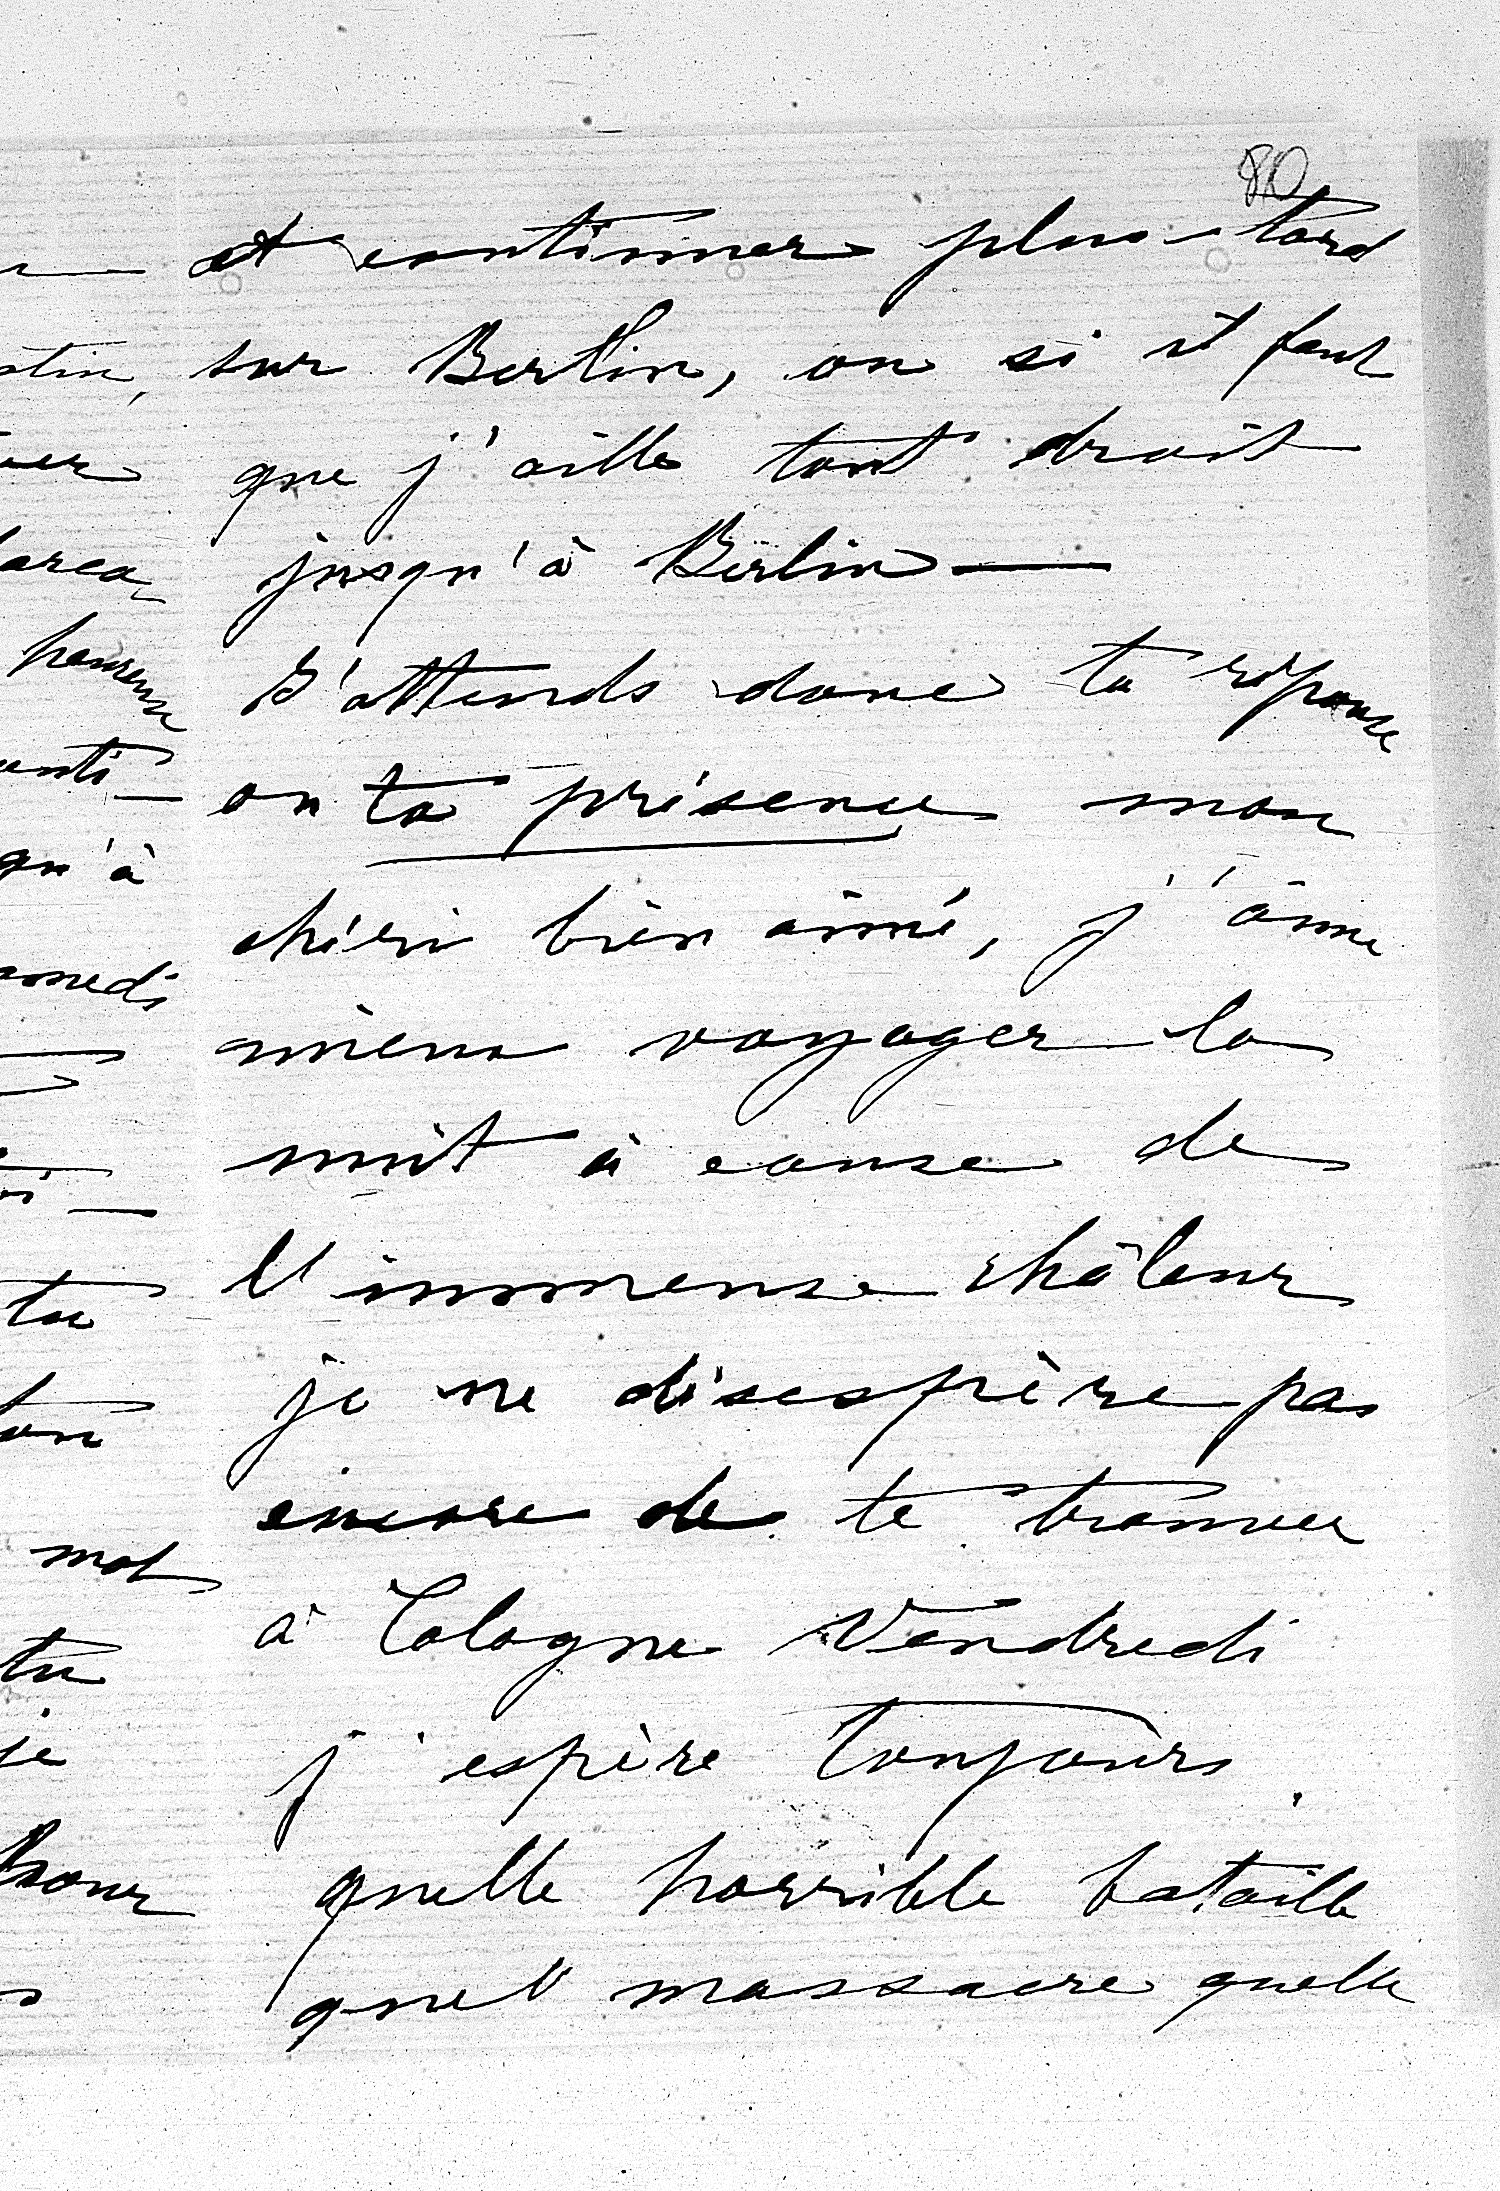 80
et continuer plus-tard
sur Berlin, ou si il faut
que j'aille tout droit
jusqu'à Berlin —
J'attends donc ta réponse
ou ta présence mon
chéri bien aimé, j'aime
mieux voyager la
nuit à cause de
l'immense châleur
je ne désespère pas
encore de te trouver
à Cologne Vendredi
j'espère toujours.
quelle horrible bataille
quel massacre quelle